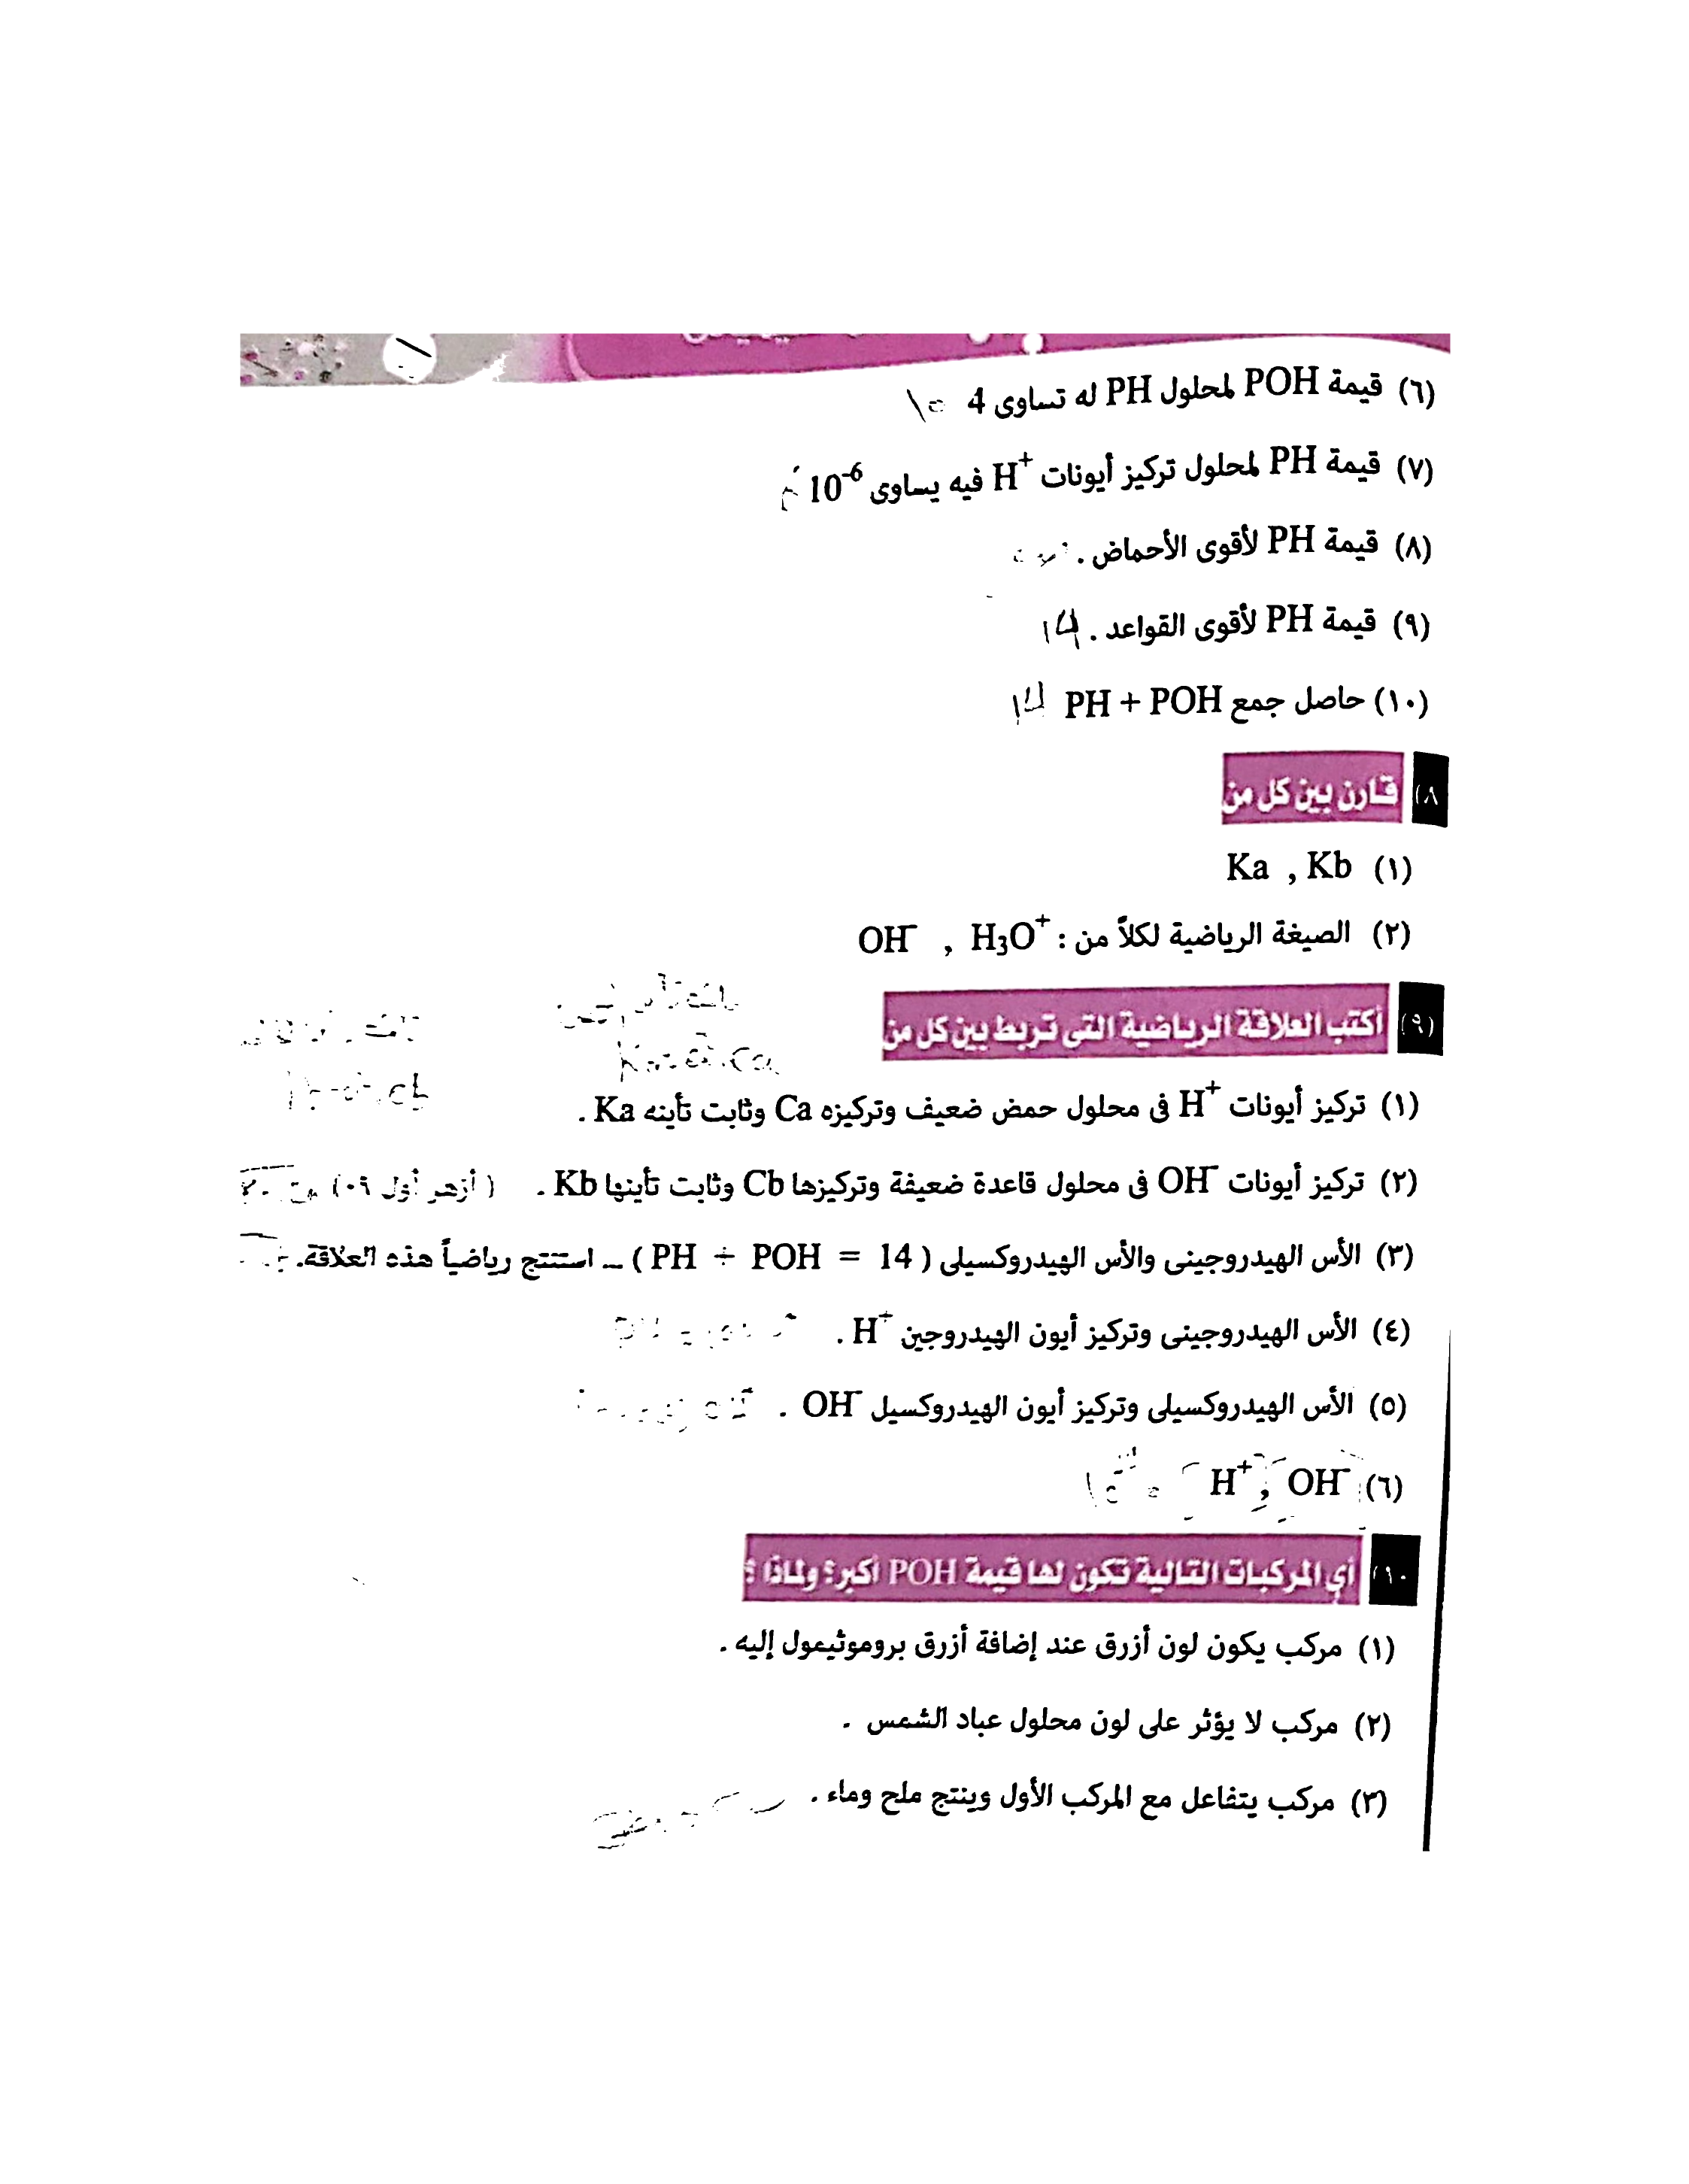 (٦) قيمة POH لمحلول PH له تساوى 4 10
(٧) قيمة PH لمحلول تركيز أيونات H⁺ فيه يساوى 10⁻⁶
(٨) قيمة PH لأقوى الأحماض .
(٩) قيمة PH لأقوى القواعد . 14
(١٠) حاصل جمع PH + POH 14
(٨) قارن بين كل من
(١) Ka , Kb
(٢) الصيغة الرياضية لكلاً من : H₃O⁺ , OH⁻
(٩) أكتب العلاقة الرياضية التى تربط بين كل من
(١) تركيز أيونات H⁺ فى محلول حمض ضعيف وتركيزه Ca وثابت تأينه Ka .
(٢) تركيز أيونات OH⁻ فى محلول قاعدة ضعيفة وتركيزها Cb وثابت تأينها Kb . (أزهر أول ٠٩)
(٣) الأس الهيدروجينى والأس الهيدروكسيلى ( PH + POH = 14 ) – استنتج رياضياً هذه العلاقة.
(٤) الأس الهيدروجينى وتركيز أيون الهيدروجين H⁺ .
(٥) الأس الهيدروكسيلى وتركيز أيون الهيدروكسيل OH⁻ .
(٦) OH⁻ , H⁺
(١٠) أي المركبات التالية تكون لها قيمة POH أكبر؟ ولماذا ؟
(١) مركب يكون لون أزرق عند إضافة أزرق بروموثيمول إليه .
(٢) مركب لا يؤثر على لون محلول عباد الشمس .
(٣) مركب يتفاعل مع المركب الأول وينتج ملح وماء .